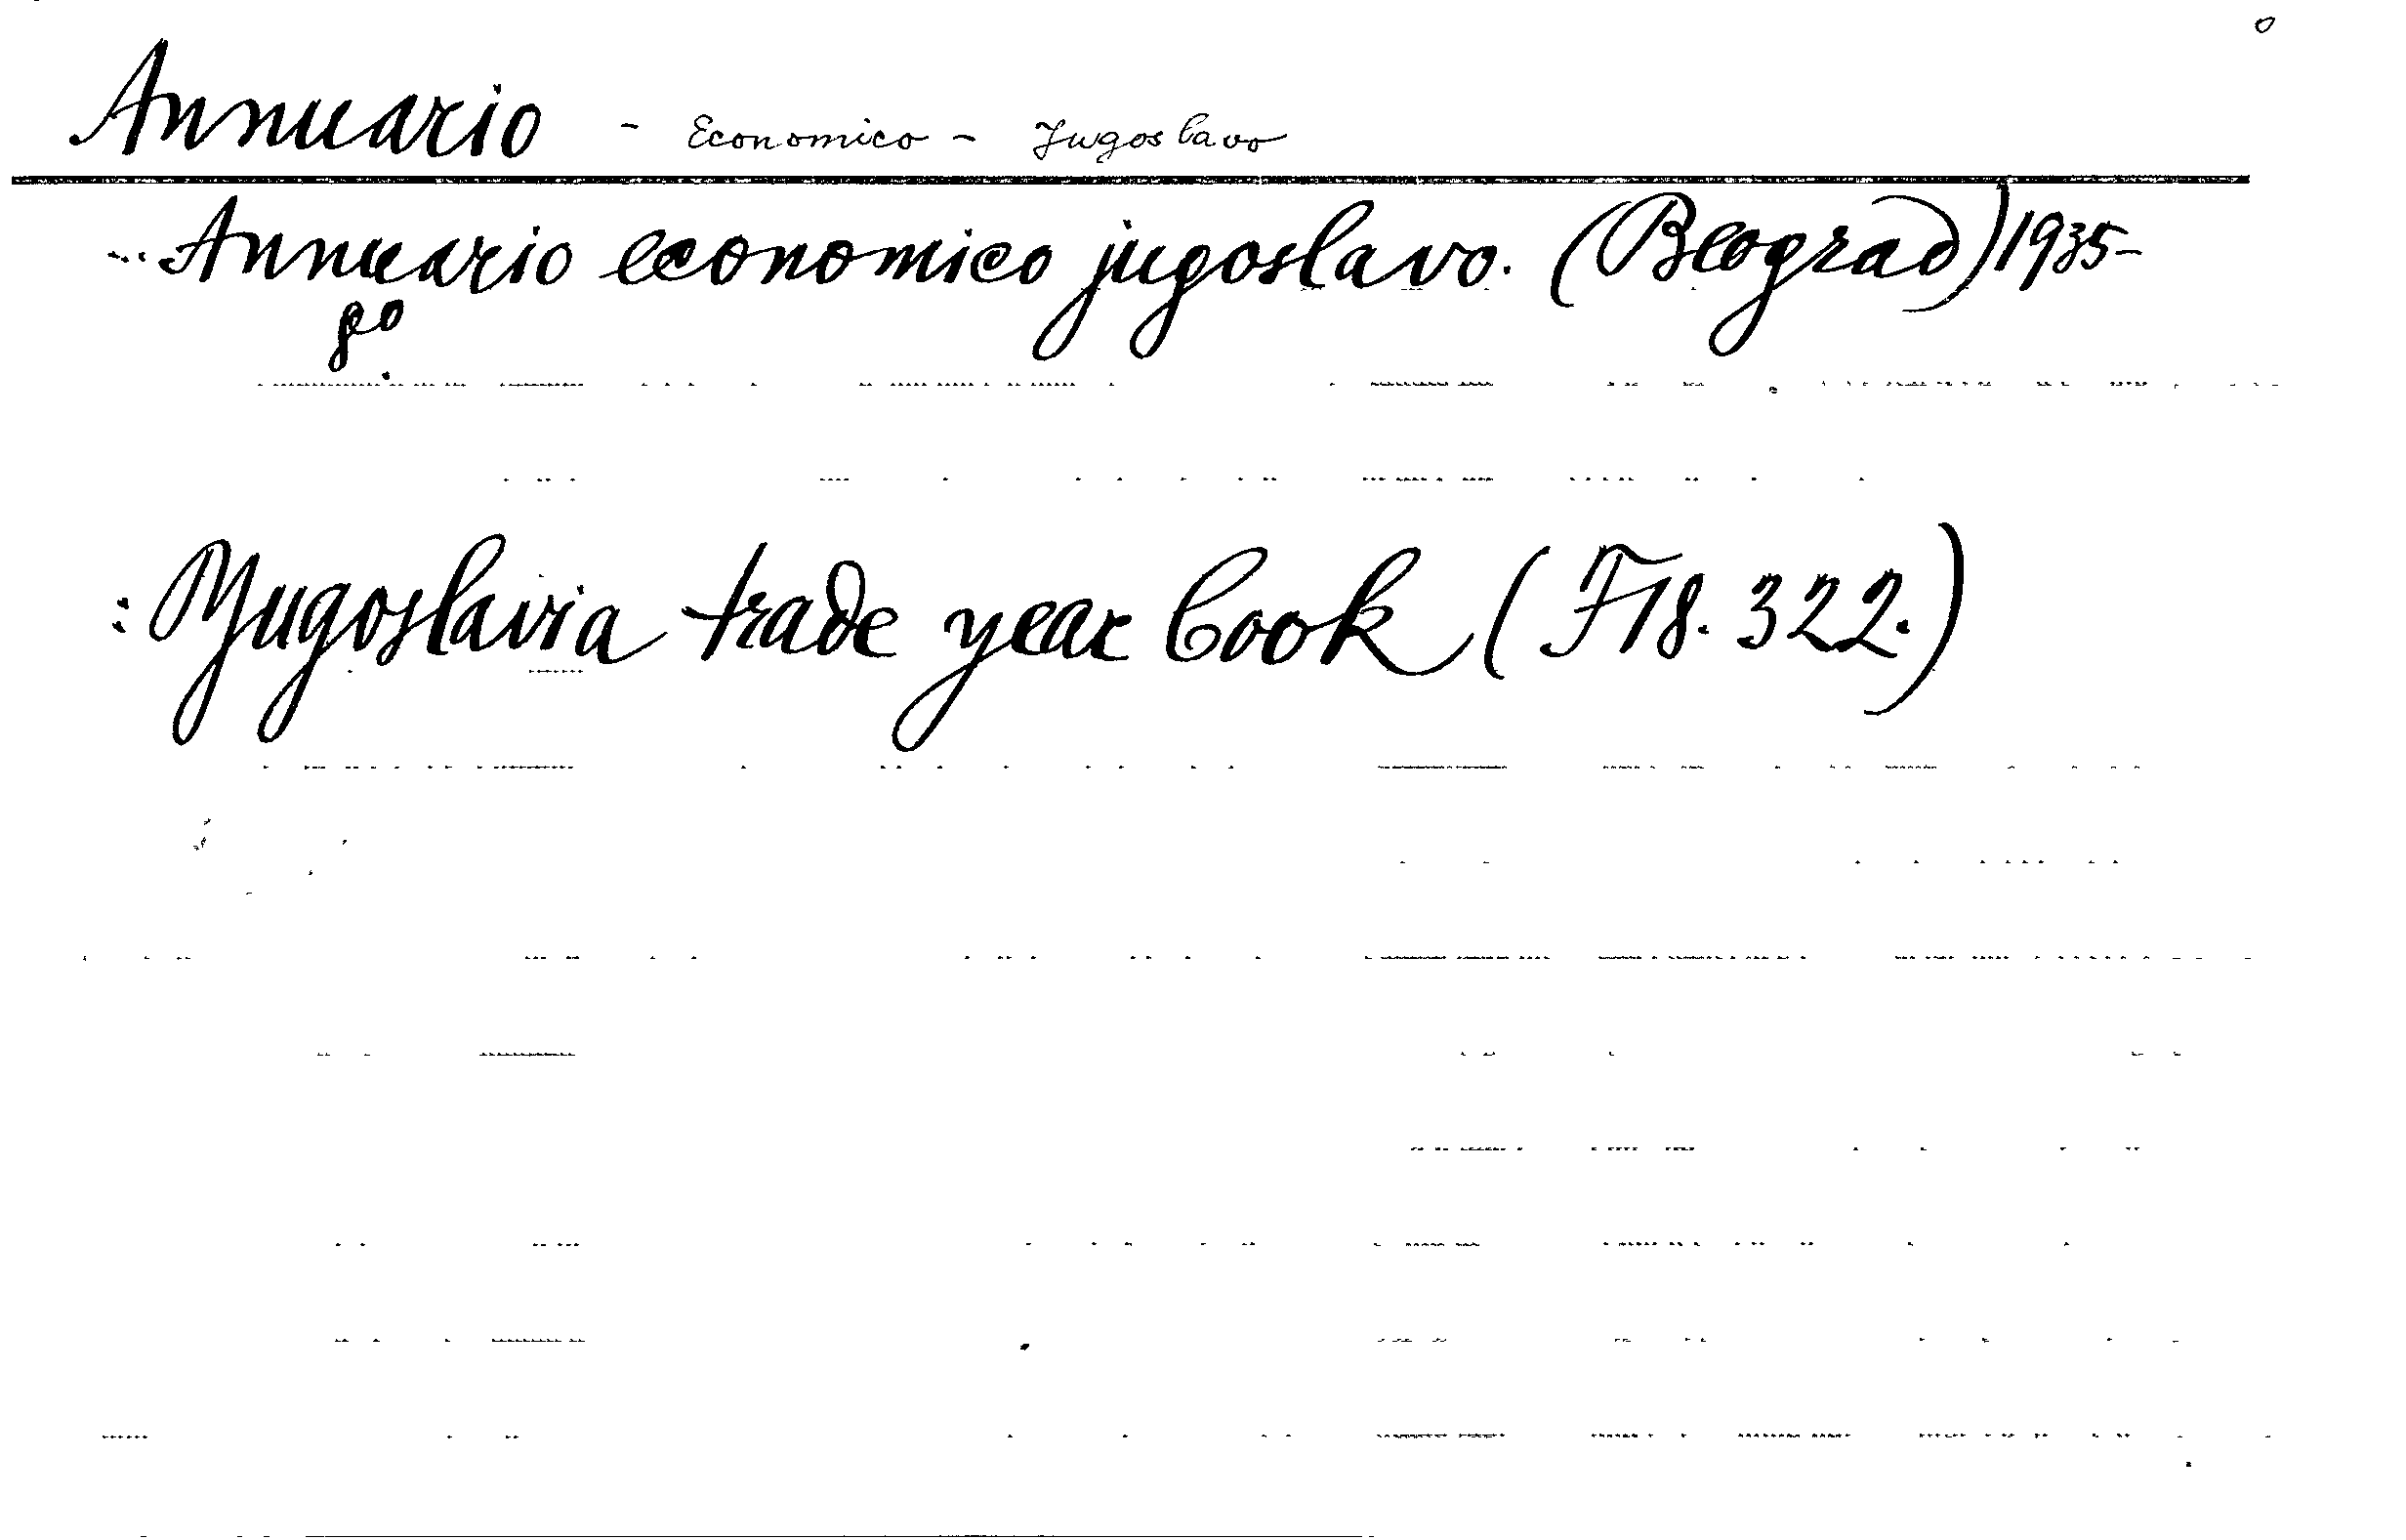 Annuario - Economico - Jugoslavo
Annuario economico jugoslavo. (Beograd) 1935-
8°
: Yugoslavia trade year book (F18. 322.)